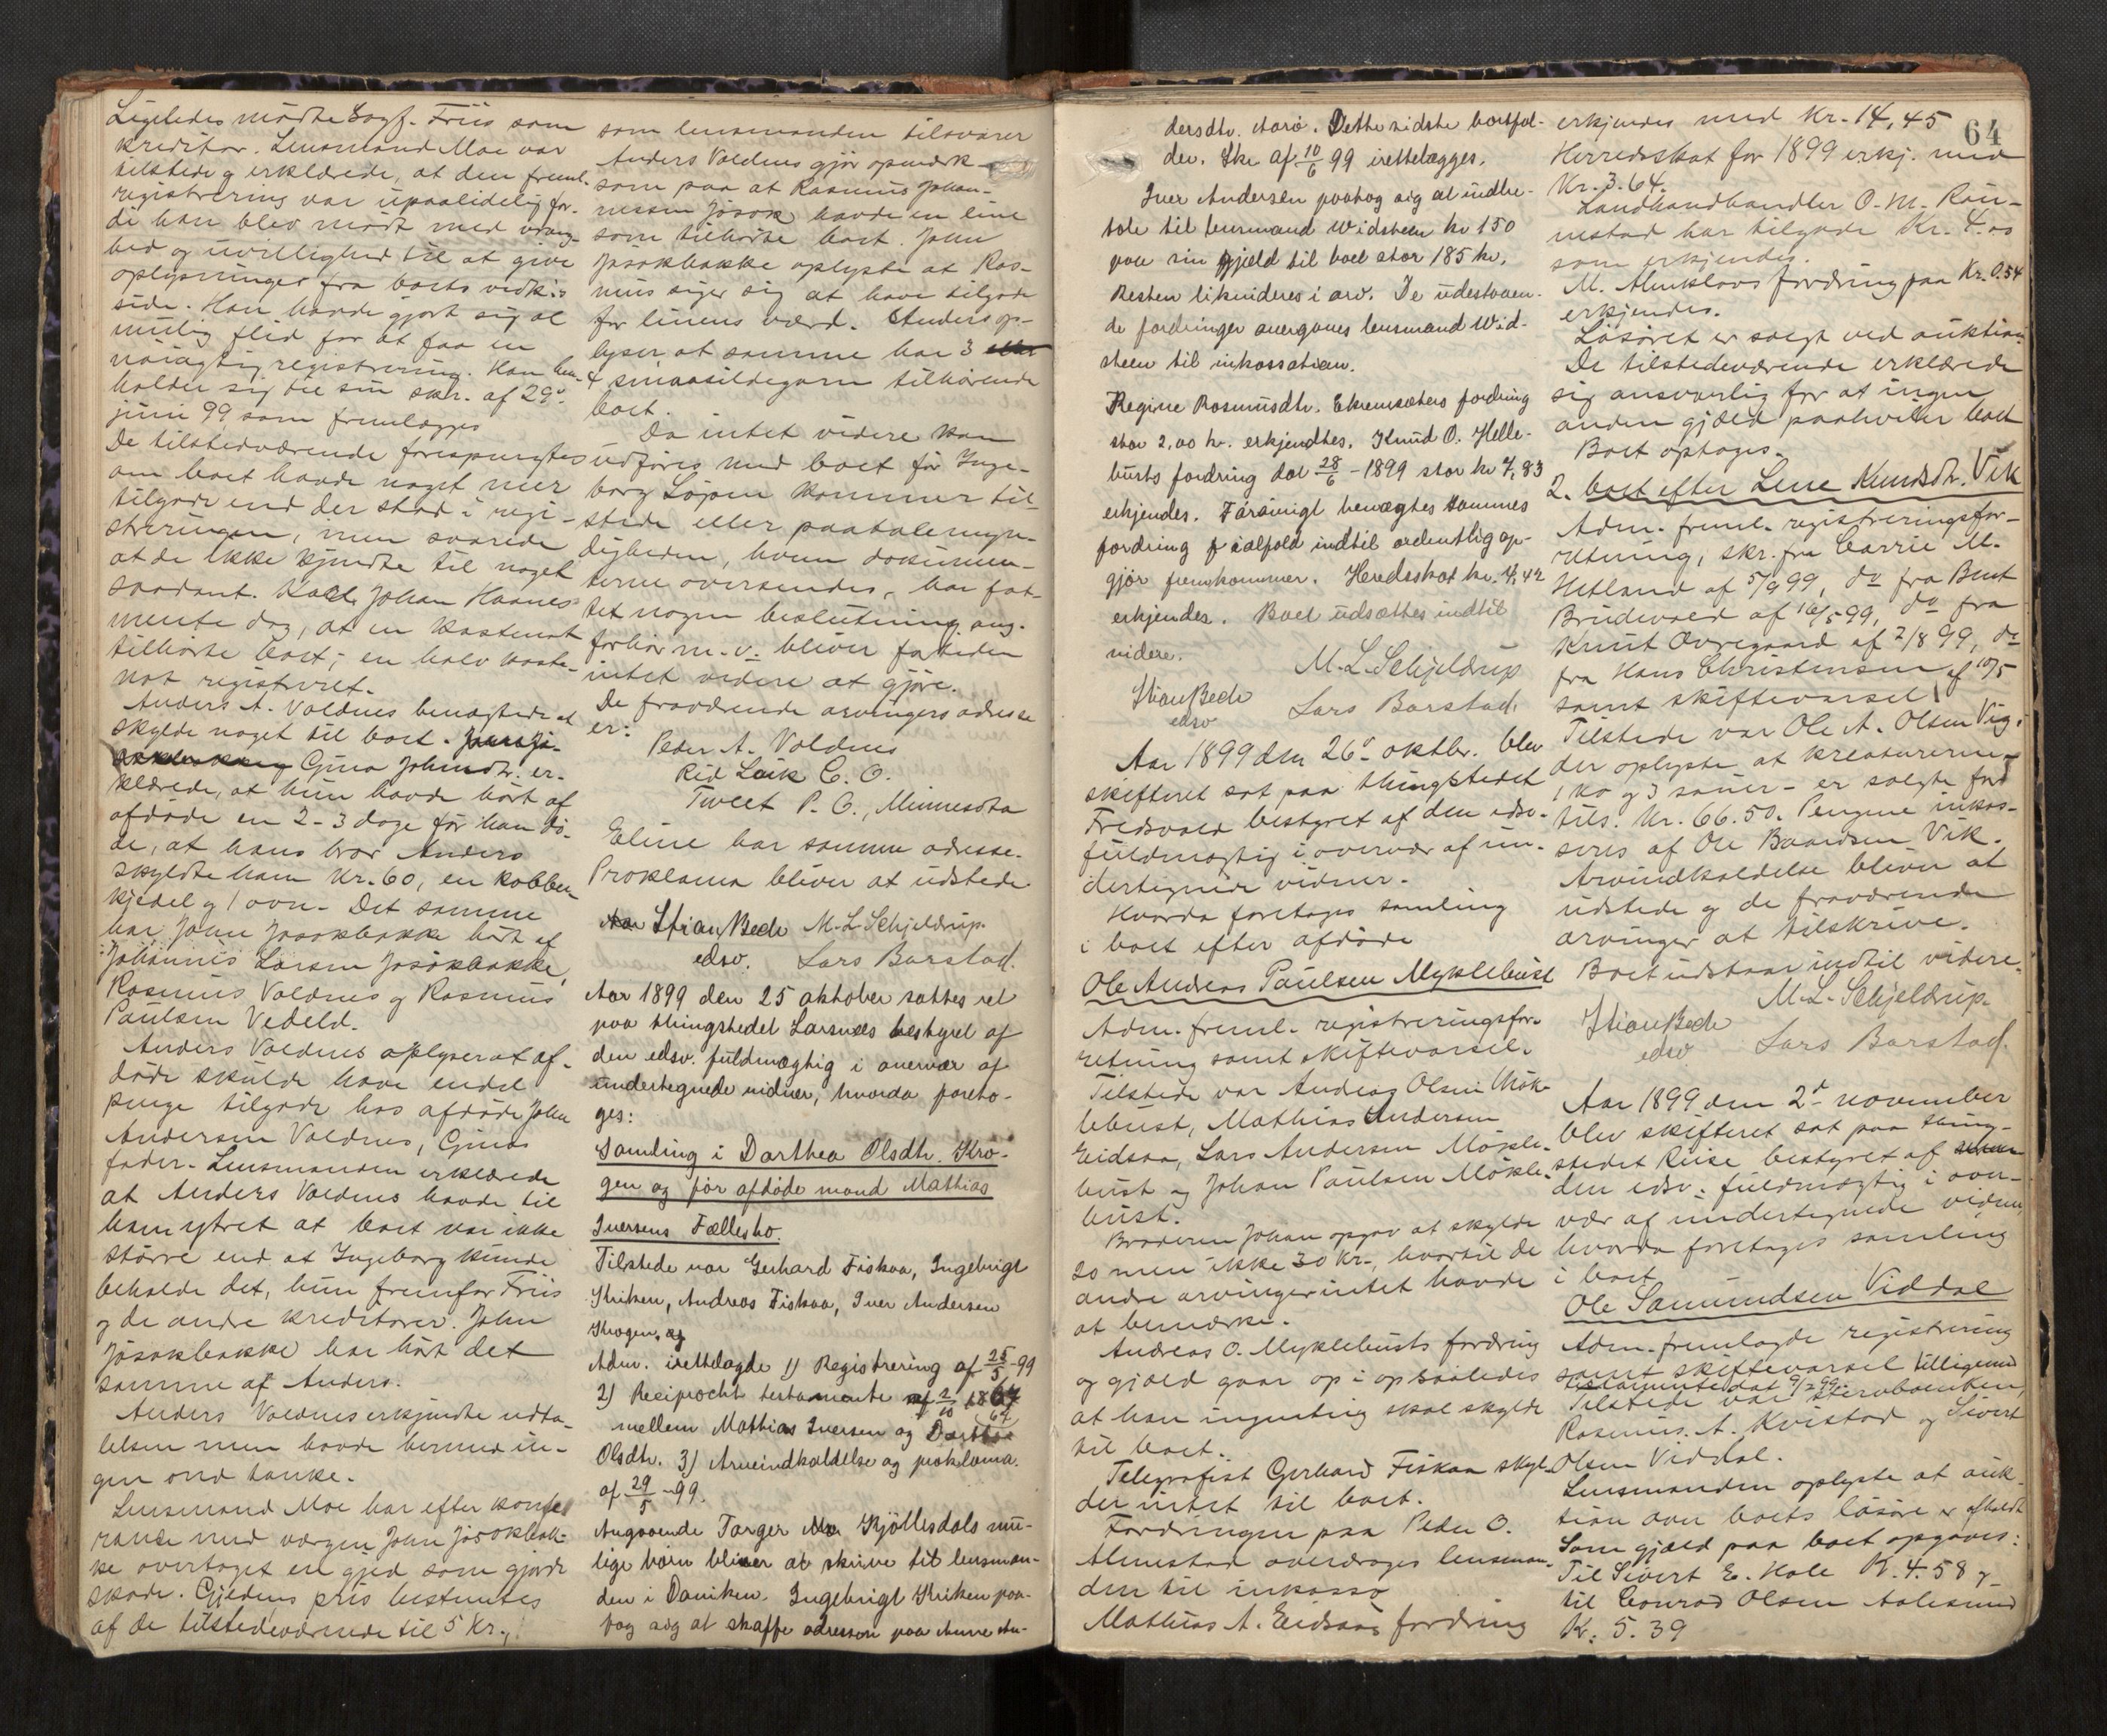 Ligeledes mödte Sagf. Friis som
kreditor. Lensmand Moe var
tilstede og erklærede, at den freml.
registrering var upaalidelig for-
di han blev mödt med vrang-
hed og uvillighed til at give
oplysninger fra boets vedk:s
side. Han havde gjort sig al
mulig flid for at faa en
nöiagtig registrering. Han hen-
holder sig til sin skr. af 29d
juni 99 som fremlægges
De tilstedeværende forespurgtes
om boet havde noget mer
tilgode end der stod i regi-
streringen, men svarede
at de ikke kjendte til noget
saadant. Johan Haanes
mente dog, at en kastenot
tilhörte boet; en halv kaste-
not registreret.
Anders A. Voldnes benægtede at
skylde noget til boet.
Gina Johnsdtr. er-
klærede, at hun havde hört af
afdöde en 2-3 dage för han dö-
de, at hans bror Anders
skyldte ham Kr. 60, en kobber
kjedel og 1 ovn. Det samme
har John Jösokbakke hört af
Johannes Larsen Jösokbakke,
Rasmus Voldnes og Rasmus
Paulsen Vedeld.
Anders Voldnes oplyser at af-
döde skulde have endel
penge tilgode hos afdöde John
Andersen Voldnes, Ginas
fader. Lensmanden erklærede
at Anders Voldnes havde til
ham ytret at boet var ikke
större end at Ingeborg kunde
beholde det, hun fremfor Friis
og de andre kreditorer. John
Jösokbakke har hört det
samme af Anders.
Anders Voldnes erkjendte udta-
lelsen men havde hermed in-
gen ond tanke.
Lensmand Moe har efter konfe
rance med værgen John Jösokbak-
ke overtaget en gjed som gjorde
skade. Gjedens pris bestemtes
af de tilstedeværende til 5 Kr.,
som lensmanden tilsvarer
Anders Voldnes gjör opmærk-
som paa at Rasmus Johan-
nessen Jösok havde en line
som tilhörte boet. John
Jösokbakke oplyste at Ras-
mus siger sig at have tilgode
for linens værd. Anders op-
lyser at samme har 3 eller
4 smaasildegarn tilhörende
boet.
Da intet videre kan
udföres med boet för Inge-
borg Löpen kommer til-
stede eller paatalemyn-
digheden, hvem dokumen-
terne oversendes, har fat-
tet nogen beslutning ang.
forhör m. v. bliver fortiden
intet videre at gjöre.
De fraværende arvingers adresse
er:
Peder A. Voldnes
Rid Laik C. O.
Tweet P. O., Minnesota
Eline har samme adresse.
Proklama bliver at udstede
Stian Bech M. L. Schjeldrup.
edsv. Lars Barstad.
Aar 1899 den 25 oktober sattes ret
paa thingstedet Larsnæs bestyret af
den edsv. fuldmægtig i overvær af
undertegnede vidner, hvorda foreto-
ges:
Samling i Darthea Olsdtr. Kro-
gen og för afdöde mand Mathias
Iversens Fællesbo.
Tilstede var Gerhard Fiskaa, Ingebrigt
Kriken, Andreas Fiskaa, Iver Andersen
Krogen, og
Adm. irettelagde 1) Registrering af 25/5-99
2) Reciprockt testamente af 2/10 1867
64
mellem Mathias Iversen og Darthea
Olsdtr. 3) Arveindkaldelse og proklama.
af 29/5-99.
Angaaende Torger Kjöllesdals mu-
lige börn bliver at skrive til lensman-
den i Daviken. Ingebrigt Kriken paa-
tog sig at skaffe adressen paa Anne An-
dersdtr. Aarö. Dette sidste bortfal-
der. Skr. af 10/6 99 irettelægges.
Iver Andersen paatog sig at indbe-
tale til lensmand Widsteen kr 150
paa sin gjæld til boet stor 185 kr.
Resten likvideres i arv. De udestaaen-
de fordringer overgaves lensmand Wid-
steen til inkassation.
Regine Rasmusdtr. Ekremsæters fordring
stor 2,00 kr. erkjendtes. Knud O. Helle-
busts fordring dat 28/6-1899 stor kr 7,83
erkjendes. Forövrigt benægtes sammes
fordring ialfald indtil ordentlig op-
gjör fremkommer. Heredsskat kr. 4,42
erkjendes. Boet udsættes indtil
videre.
M. L. Schjeldrup
Stian Bech
edsv Lars Barstad.
Aar 1899 den 26d oktbr. blev
skifteret sat paa thingstedet
Fredsvold bestyret af den edsv.
fuldmægtig i overvær af un-
dertegnede vidner.
Hvorda foretages samling
i boet efter afdöde
Ole Andreas Paulsen Myklebust
Adm. freml. registreringsfor-
retning samt skiftevarsel.
Tilstede var Andreas Olsen Mök-
lebust, Mathias Andersen
Eidsaa, Lars Andersen Mökle-
bust og Johan Paulsen Mökle-
bust.
Broderen Johan opgav at skylde
20 men ikke 30 Kr., hvortil de
andre arvinger intet havde
at bemærke.
Andreas O. Myklebusts fordring
og gjæld gaar op i op saaledes
at han ingenting skal skylde
til boet.
Telegrafist Gerhard Fiskaa skyl-
der intet til boet.
Fordringen paa Peder O.
Almestad overdrages lensman-
den til inkasso
Mathias A. Eidsaas fordring
64
erkjendes med Kr. 14,45
Herredsskat for 1899 erkj. med
Kr. 3.64.
Landhandhandler O. M. Rön-
nestad har tilgode Kr. 4.00
som erkjendes.
M. Almklovs fordring paa Kr. 0.54
erkjendes.
Lösöret er solgt ved auktion.
De tilstedeværende erklærede
sig ansvarlig for at ingen
anden gjæld paahviler boet
Boet optages.
2. boet efter Lene Knudsdtr. Vik
Adm. freml. registreringsfor-
retning, skr. fra Carrie M.
Hetland af 5/9 99, do fra Bent
Brudevold af 16/5-99, do fra
Knut Övregaard af 2/8 99, do
fra Hans Christensen af 10/5
samt skiftevarsel
Tilstede var Ole A. Olsen Vig.
der oplyste at kreaturerne -
1 ko og 3 sauer - er solgte for
tils. Kr. 66.50. Pengene inkas-
seres af Ole Baardsen Vik.
Arvindkaldelse bliver at
udstede og de fraværende
arvinger at tilskrive.
Boet udstaar indtil videre.
M. L. Schjeldrup.
Stian Bech
edsv Lars Barstad.
Aar 1899 den 2d november
blev skifteret sat paa thing-
stedet Reise bestyret af
den edsv. fuldmægtig i over-
vær af undertegnede vidner
hvorda foretages samling
i boet
Ole Samundsen Viddal
Adm. fremlagde registrering
samt skiftevarsel tilligemed
testamente dat 9/2 99.
Tilstede var sterboenken,
Rasmus. A. Kvistad og Sivert
Olsen Viddal.
Lensmanden oplyste at auk-
tion over boets lösöre er afholdt
Som gjæld paa boet opgaves:
Til Sivert E. Hole K. 4.58 og
til Conrad Olsen Aalesund
Kr. 5.39